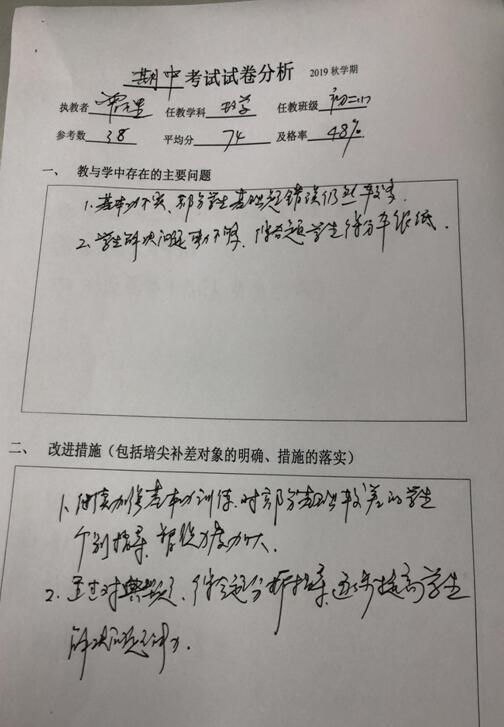 期中考试试卷分析 2019 秋学期
执教者 任教学科 数学 任教班级 初二(1)
参考数 38 平均分 74 及格率 48%
一、 教与学中存在的主要问题
1.基本功不实、部分学生基础题错误仍然较多.
2.学生解决问题能力不够,综合题学生得分率很低.
二、 改进措施(包括培尖补差对象的明确、措施的落实)
1.继续加强基本功训练.对部分基础较差的学生
个别指导,督促力度加大.
2.通过对典型题、综合题分析指导,逐步提高学生
解决问题能力.